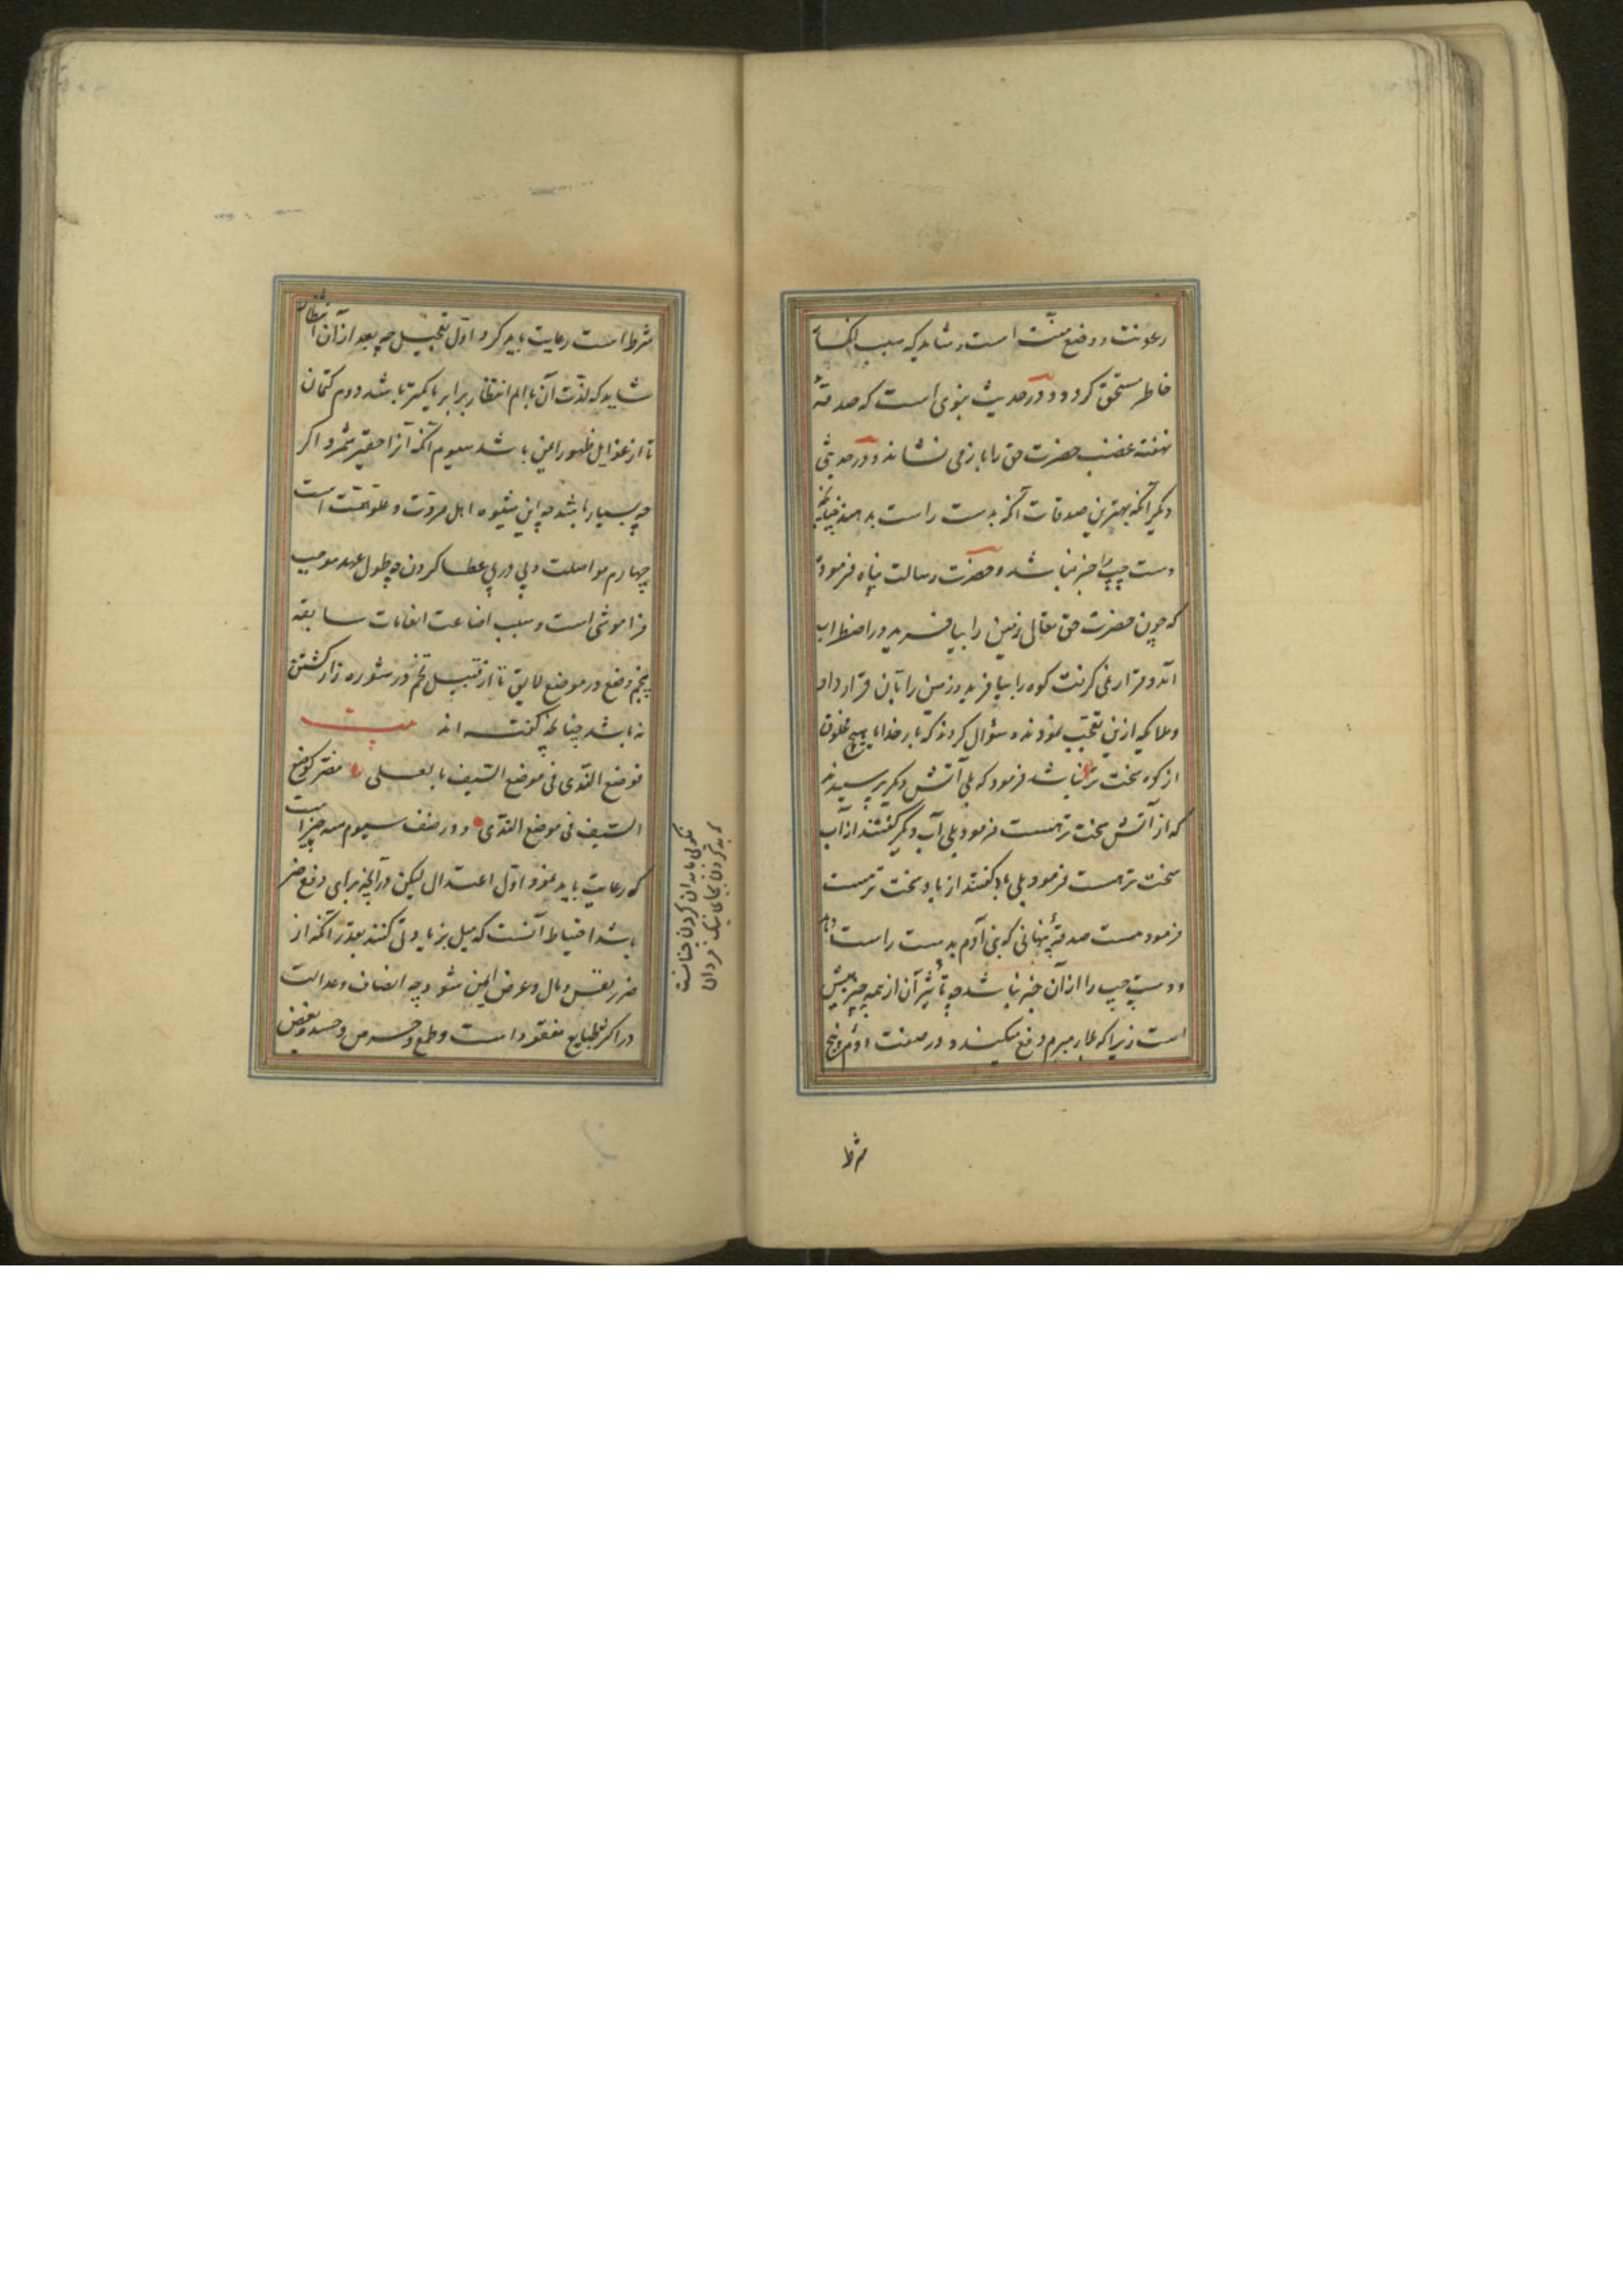 رعونت و وضع منّت است و شاید که سبب انکسار
خاطر مستحق کردد و در حدیث نبوی است که صدقهٔ
نهفته غضب حضرت حق را باز می نشاند و در حدیثی
دیکر آنکه بهترین صدقات آنکه بدست راست بدهند چنانچه
دست چپ را خبر نباشد و حضرت رسالت پناه فرمود
که چون حضرت حق تعالی زمین را بیافرید در اضطراب
آمد و قرار نمی کرفت کوه را بیافرید و زمین را بآن قرار داد
و ملایکه ازین تعجب نمودند و سؤال کردند که بار خدایا هیچ مخلوق
از کوه سخت تر نباشد فرمود که بلی آتش دیکر پرسیدند
که از آتش سخت تر هست فرمود بلی آب دیکر کفتند از آب
سخت تر هست فرمود بلی باد کفتند از باد سخت تر هست
فرمود هست صدقهٔ پنهانی که بنی آدم بدست راست دهد
و دست چپ را از آن خبر نباشد چه تأثیر آن از همه چیز بیش
است زیرا که بلا مبرم دفع میکند و در صنف دوّم پنج
شرط
شرط است رعایت باید کرد اوّل تعجیل چه بعد از آن انتظار
شاید که لذّت آن با الم انتظار برابر یا کمتر باشد دوم کتمان
تا از غوایل ظهور ایمن باشد سیوم آنکه آنرا حقیر شمرد اکر
چه بسیار باشد چه این شیوه اهل مروّت و علو همّت است
چهارم مواصلت و پی در پی عطا کردن چه طول عهد موجب
فراموشی است و سبب اضاعت انعامات سابقه
پنجم وضع در موضع لایق تا از قبیل تخم در شوره زار کشتن
نه باشد چنانچه کفته اند بیت
فوضع الندی فی موضع السّیف بالعلی مضرّ کوضع
السّیف فی موضع الندی و در صنف سیوم سه چیز است
که رعایت باید نمود اوّل اعتدال لیکن در آنچه برای دفع ضرر
باشد احتیاط آنست که میل بزیادتی کنند بقدر آنکه از
ضرر نفس و مال و عرض ایمن شود چه انصاف و عدالت
در اکثر طبایع مفقود است و طمع و حرص و حسد و بغض
نکوئی با بدان کردن چنانست
که بد کردن بجای نیک مردان